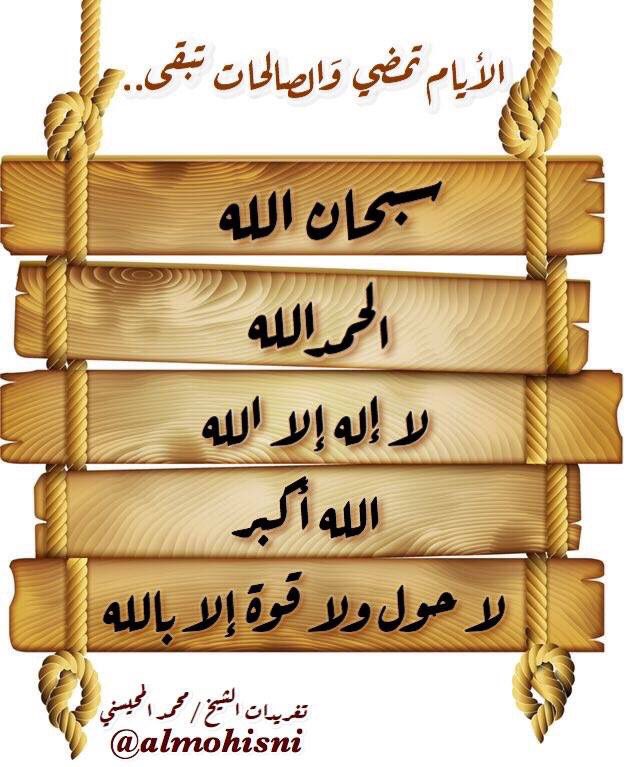 الأيام تمضي وَالصالحات تبقى..
سبحان الله
الحمدالله
لا إله إلا الله
الله أكبر
لا حول ولا قوة إلا بالله
تغريدات الشيخ / محمد المحيسني
@almohisni